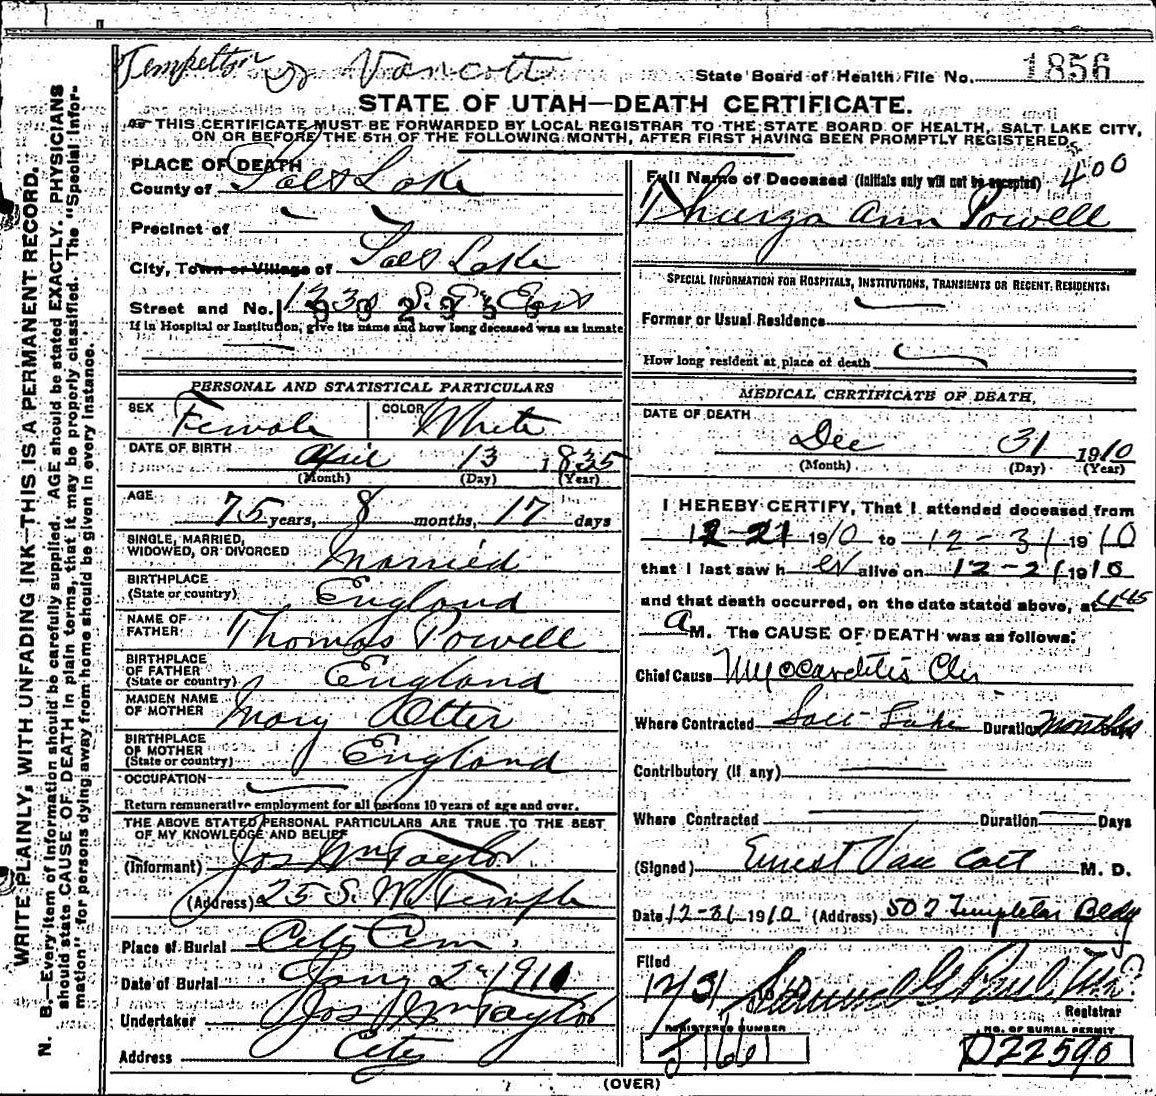 Templeton Vancott
State Board of Health File No. 1856
STATE OF UTAH—DEATH CERTIFICATE.
THIS CERTIFICATE MUST BE FORWARDED BY LOCAL REGISTRAR TO THE STATE BOARD OF HEALTH, SALT LAKE CITY,
ON OR BEFORE THE 5TH OF THE FOLLOWING MONTH, AFTER FIRST HAVING BEEN PROMPTLY REGISTERED.
WRITE PLAINLY, WITH UNFADING INK—THIS IS A PERMANENT RECORD.
N. B.—Every item of information should be carefully supplied. AGE should be stated EXACTLY. PHYSICIANS
should state CAUSE OF DEATH in plain terms, that it may be properly classified. The "Special Infor-
mation" for persons dying away from home should be given in every instance.
PLACE OF DEATH
County of Salt Lake
Precinct of
City, Town or Village of Salt Lake
Street and No.
If in Hospital or Institution, give its name and how long deceased was an inmate
PERSONAL AND STATISTICAL PARTICULARS
SEX Female COLOR White
DATE OF BIRTH April 13 1835
(Month) (Day) (Year)
AGE
75 years, 8 months, 17 days
SINGLE, MARRIED,
WIDOWED, OR DIVORCED Married
BIRTHPLACE
(State or country) England
NAME OF
FATHER Thomas Powell
BIRTHPLACE
OF FATHER
(State or country) England
MAIDEN NAME
OF MOTHER Mary
BIRTHPLACE
OF MOTHER
(State or country) England
OCCUPATION
Return remunerative employment for all persons 10 years of age and over.
THE ABOVE STATED PERSONAL PARTICULARS ARE TRUE TO THE BEST
OF MY KNOWLEDGE AND BELIEF
(Informant) Jos Wm Taylor
(Address) 25 S. W. Temple
Place of Burial City Cem.
Date of Burial Jany 2" 1911
Undertaker Jos Wm Taylor
Address City
Full Name of Deceased (Initials only will not be accepted) 400
Ann Powell
SPECIAL INFORMATION FOR HOSPITALS, INSTITUTIONS, TRANSIENTS OR RECENT RESIDENTS:
Former or Usual Residence
How long resident at place of death
MEDICAL CERTIFICATE OF DEATH.
DATE OF DEATH
Dec 31 1910
(Month) (Day) (Year)
I HEREBY CERTIFY, That I attended deceased from
12-21 1910 to 12-31 1910
that I last saw h er alive on 12-21 1910
and that death occurred, on the date stated above, at 445
A M. The CAUSE OF DEATH was as follows:
Chief Cause Myocarditis Chr
Where Contracted Salt Lake Duration Months
Contributory (if any)
Where Contracted Duration Days
(Signed) Ernest Van Cott M. D.
Date 12-31 1910 (Address) 502 Templeton Bldg
Filed
12/31 Samuel G Paul
Registrar
REGISTERED NUMBER
NO. OF BURIAL PERMIT
D22590
(OVER)